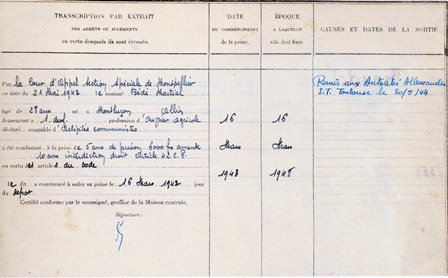 TRANSCRIPTION PAR EXTRAIT
DES ARRÊTS OU JUGEMENTS
en vertu desquels ils sont écroués.
DATE
DU COMMENCEMENT
de la peine.
ÉPOQUE
A LAQUELLE
elle doit finir.
CAUSES ET DATES DE LA SORTIE
Par la Cour d'Appel Section Spéciale de Montpellier
en date du 21 Mai 1943 le nommé Bédé Martial
âgé de 28 ans né à Montluçon Allier
demeurant à profession d'Ouvrier agricole
déclaré coupable d'activités communistes
a été condamné à la peine de 5 ans de prison 6000 fs amende
10 ans interdiction droits article 42 C.P.
en vertu des articles du code
le dit a commencé à subir sa peine le 16 Mars 1943 jour
du
Certifié conforme par le soussigné, greffier de la Maison centrale,
Signature :
16
Mars
1943
16
Mars
1948
Remis aux Autorités Allemandes
S.T. Toulouse le 30/5/44